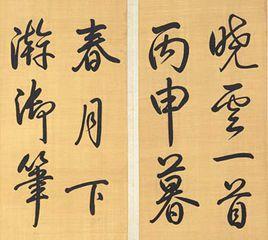 晓云一首
丙申暮
春月下
澣御筆